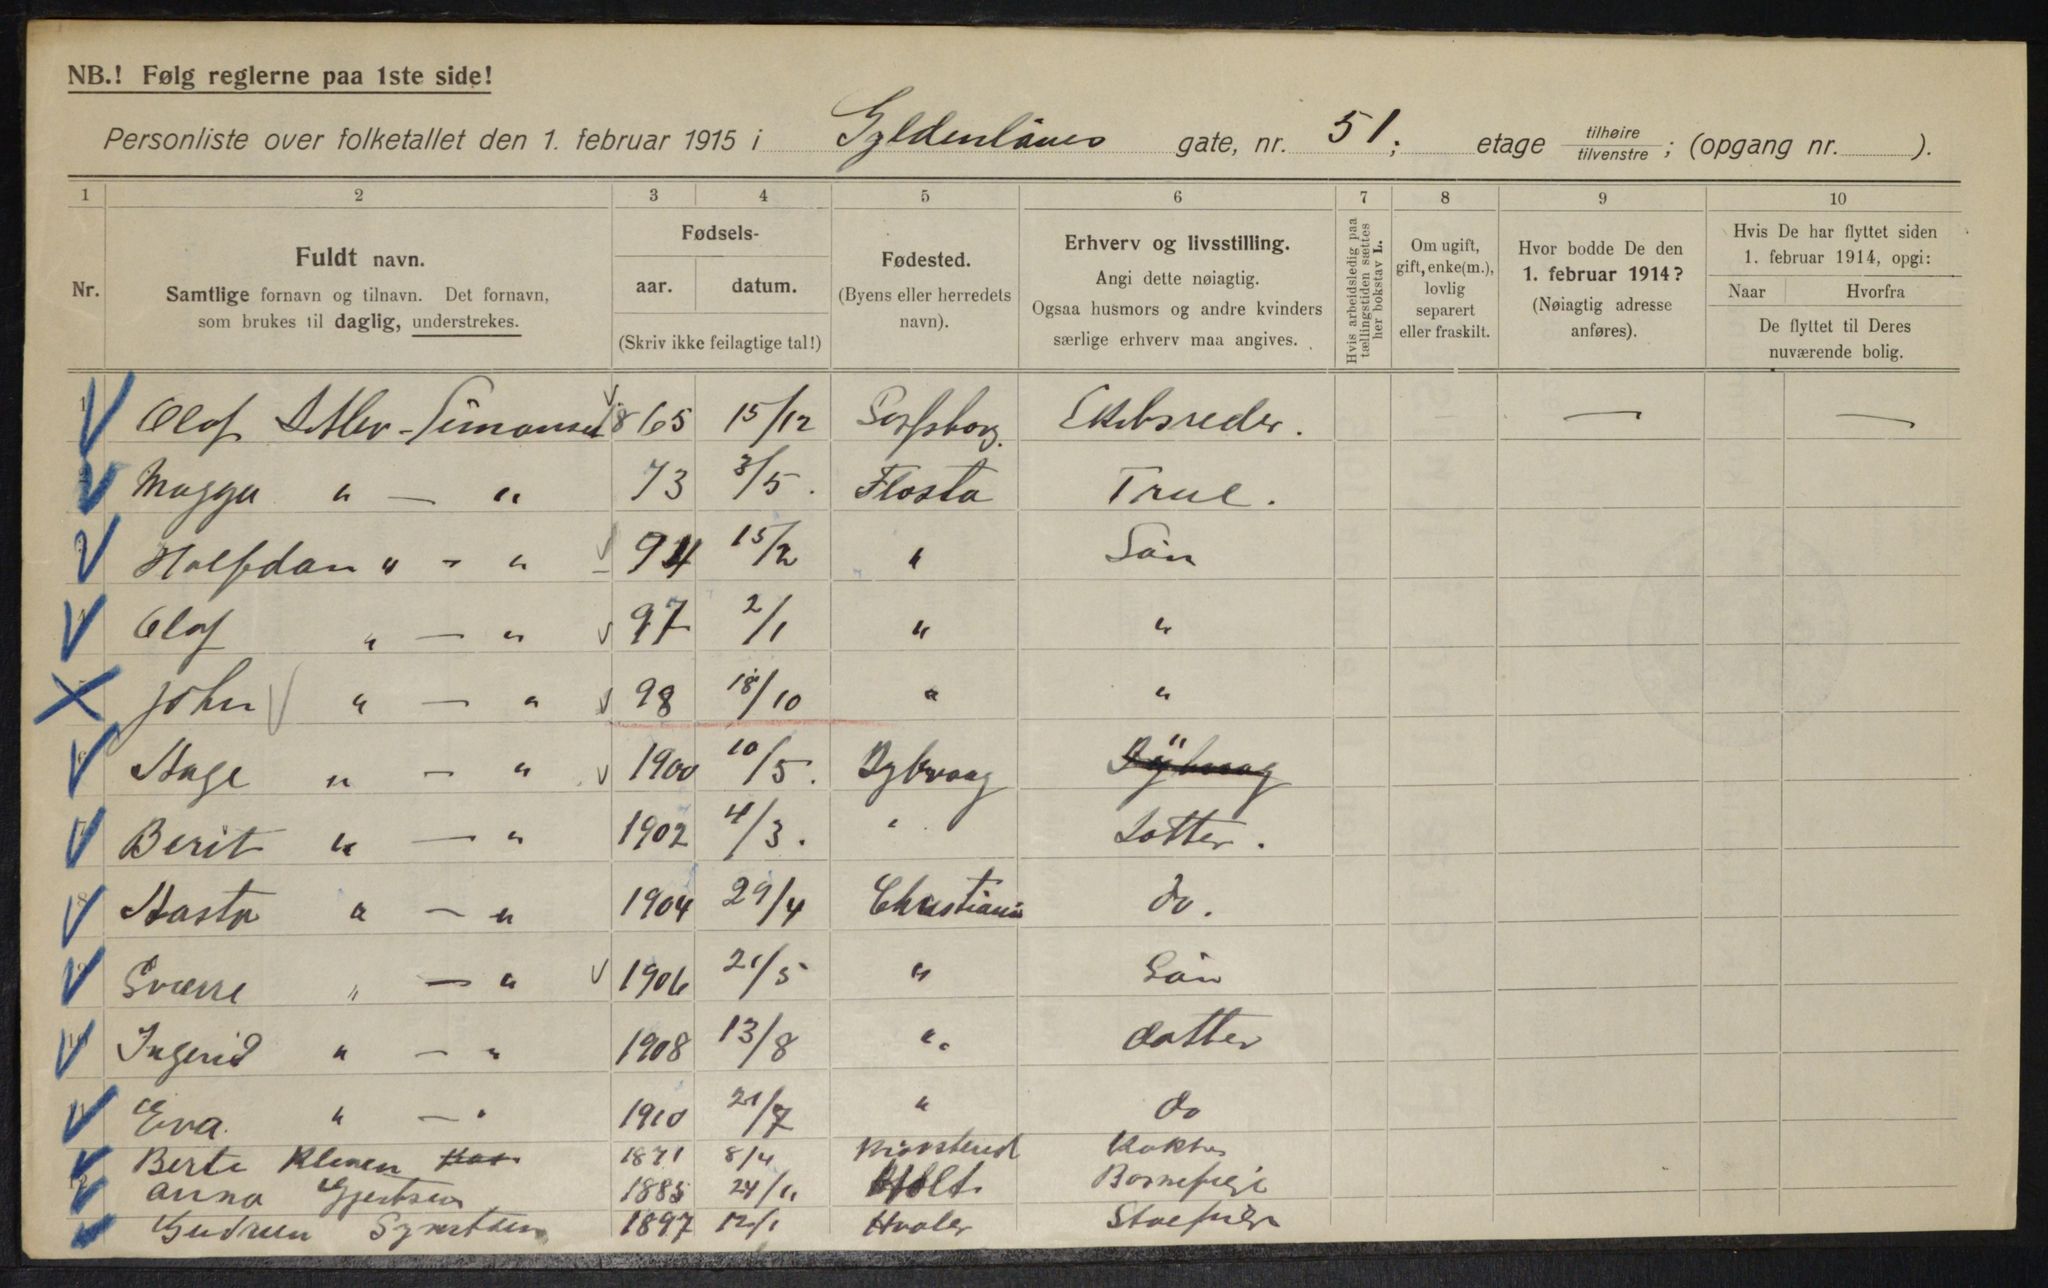 NB.! Følg reglerne paa 1ste side!
Personliste over folketallet den 1. februar 1915 i Gyldenløves gate, nr. 51; etage tilhøire / tilvenstre ; (opgang nr. ).
1 2 3 4 5 6 7 8 9 10
Nr.
Fuldt navn.
Samtlige fornavn og tilnavn. Det fornavn,
som brukes til daglig, understrekes.
Fødsels-
aar. datum.
(Skriv ikke feilagtige tal!)
Fødested.
(Byens eller herredets
navn).
Erhverv og livsstilling.
Angi dette nøiagtig.
Ogsaa husmors og andre kvinders
særlige erhverv maa angives.
Hvis arbeidsledig paa
tællingstiden sættes
her bokstav L.
Om ugift,
gift, enke(m.),
lovlig
separert
eller fraskilt.
Hvor bodde De den
1. februar 1914?
(Nøiagtig adresse
anføres).
Hvis De har flyttet siden
1. februar 1914, opgi:
Naar Hvorfra
De flyttet til Deres
nuværende bolig.
1 Olaf Ditlev-Simonsen 1865 15/12 Sarpsborg. Skibsreder. — —
2 Magga " — " 73 3/5. Flosta Frue.
3 Halfdan " - " 94 15/2 " Søn
4 Olaf " — " 97 2/1 " "
5 John " — " 98 18/10 " "
6 Aage " — " 1900 10/5. Dybvaag "
7 Berit " — " 1902 4/3. " Datter.
8 Aasta " — " 1904 29/4 Christiania do.
9 Sverre " — " 1906 21/5 " Søn
10 Ingerid " — " 1908 13/8 " datter
11 Eva " — " 1910 21/7 " do
12 Berte 1871 8/4 Kokke
Anna Gjertsen 1885 24/11 Holt. Barnepige
Gudrun 1897 12/1 Hvaler Stuepige